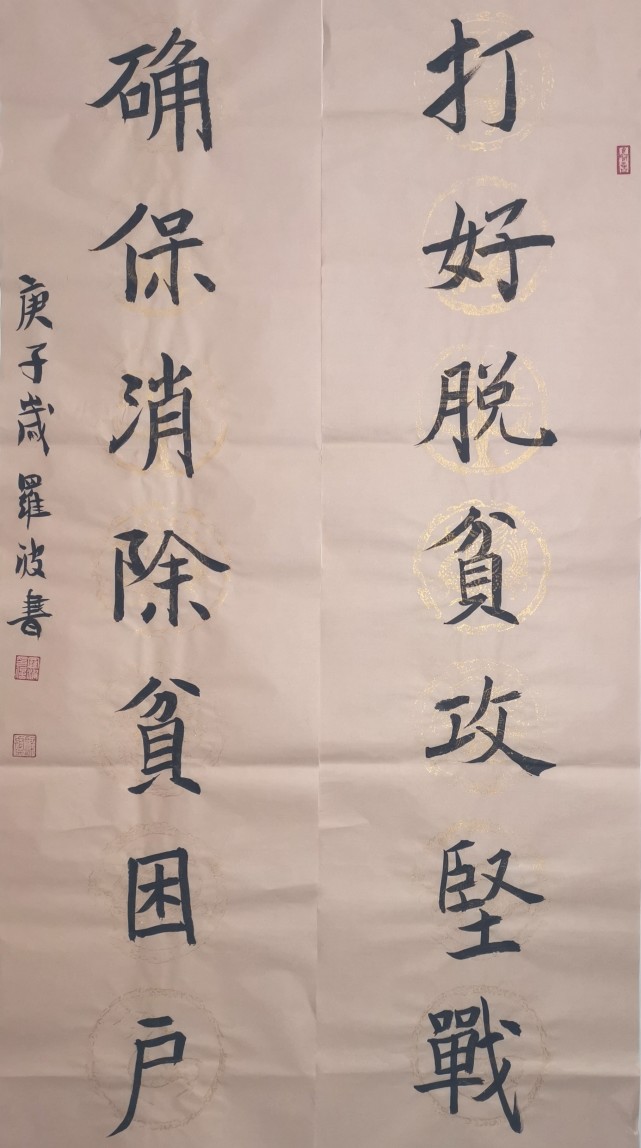 打好脱貧攻堅戰
确保消除貧困户
庚子歲羅波書